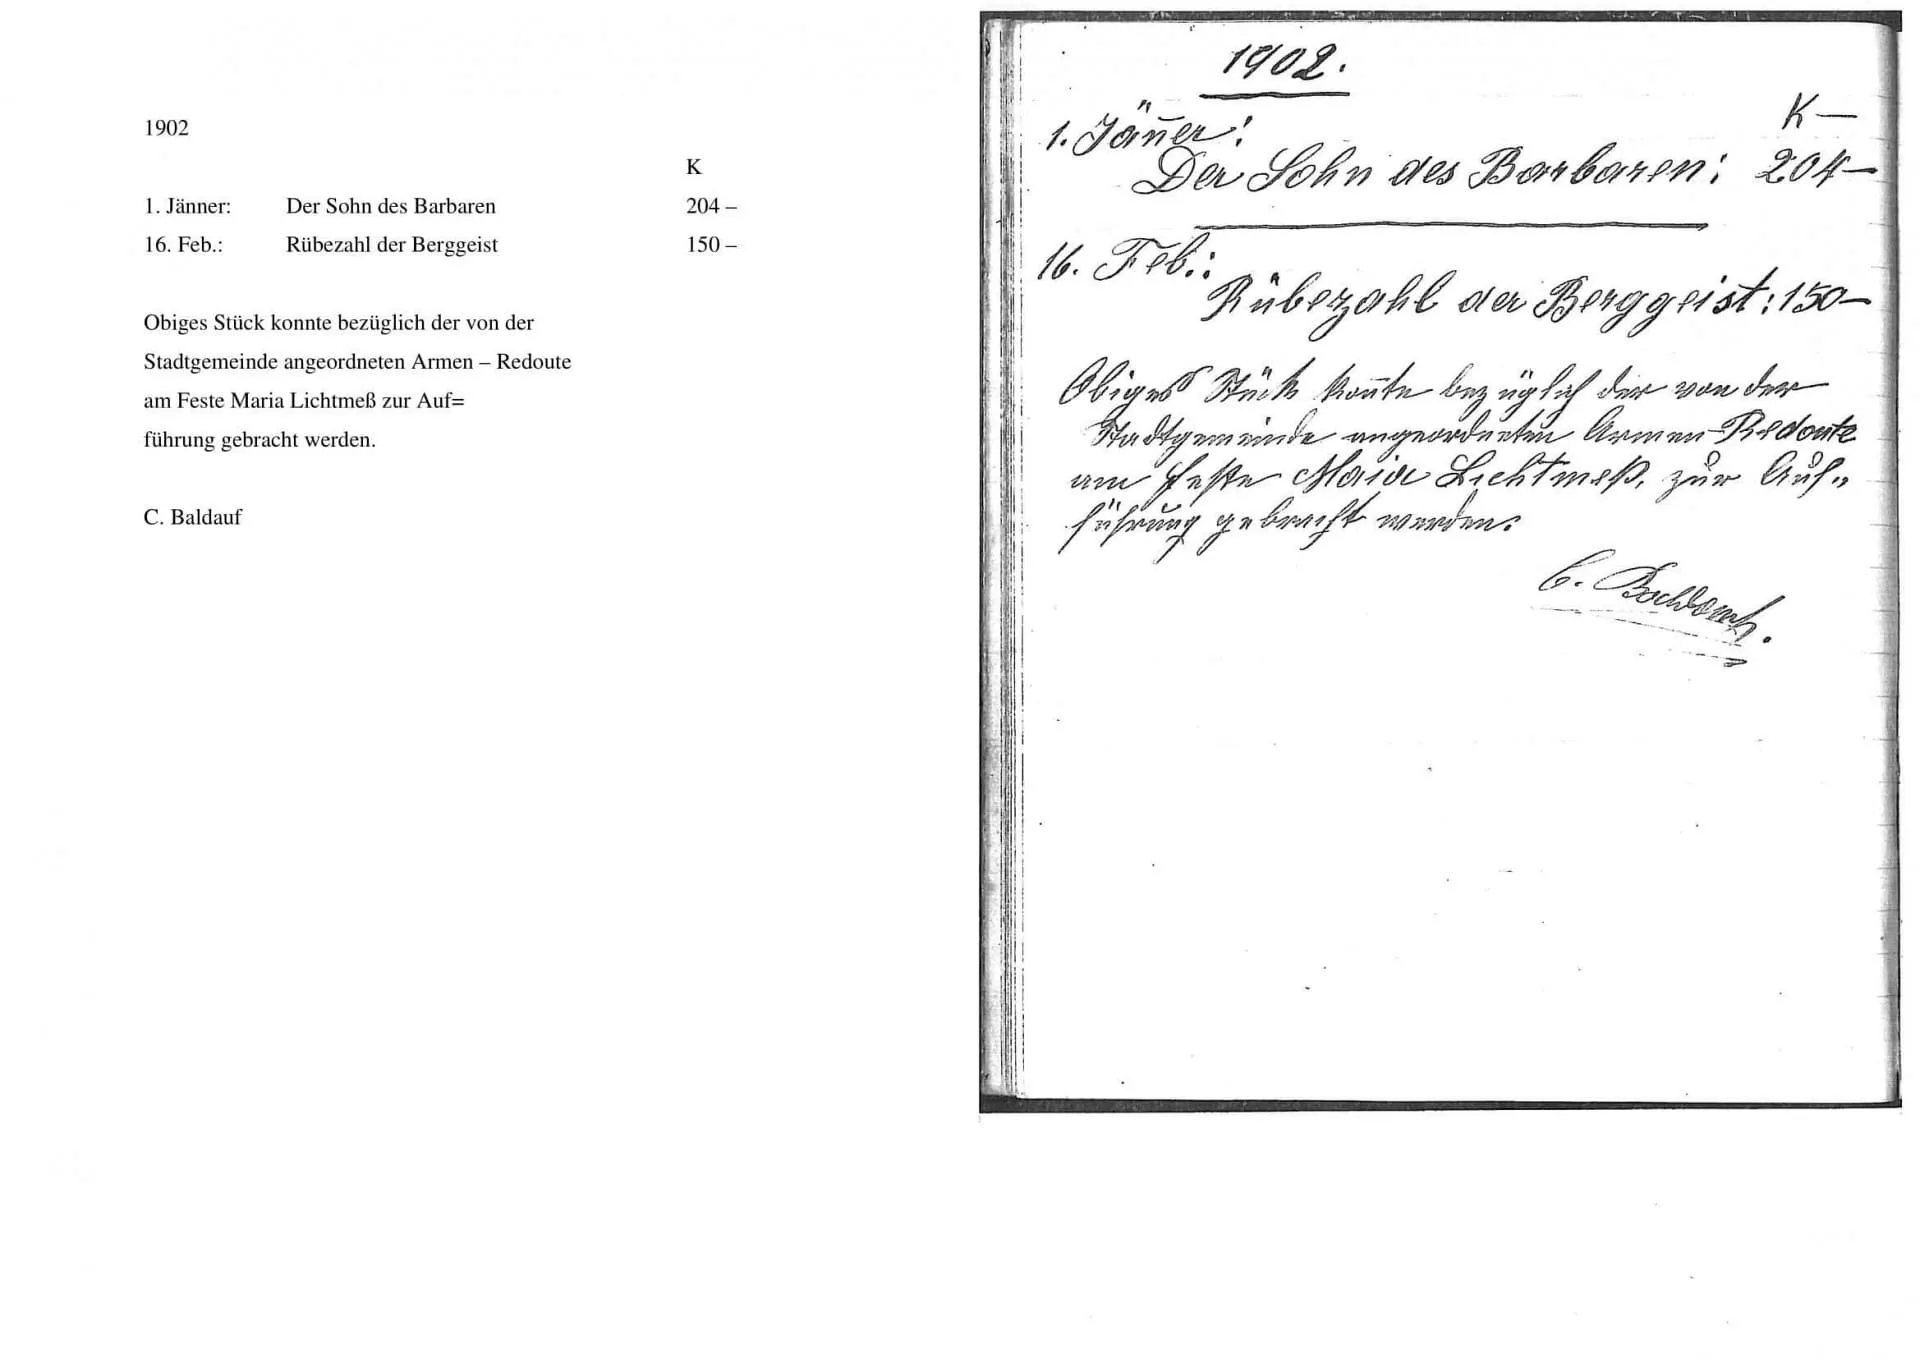 1902
K
1. Jänner: Der Sohn des Barbaren 204 –
16. Feb.: Rübezahl der Berggeist 150 –
Obiges Stück konnte bezüglich der von der
Stadtgemeinde angeordneten Armen – Redoute
am Feste Maria Lichtmeß zur Auf=
führung gebracht werden.
C. Baldauf
1902.
K —
1. Jän̄er:
Der Sohn des Barbaren: 204 —
16. Feb.:
Rübezahl der Berggeist: 150 —
Obiges Stück kon̄te bezüglich der von der
Stadtgemeinde angeordneten Armen-Redoute
am Feste Maia Lichtmeß, zur Auf„
führung gebracht werden.
C. Baldauf.